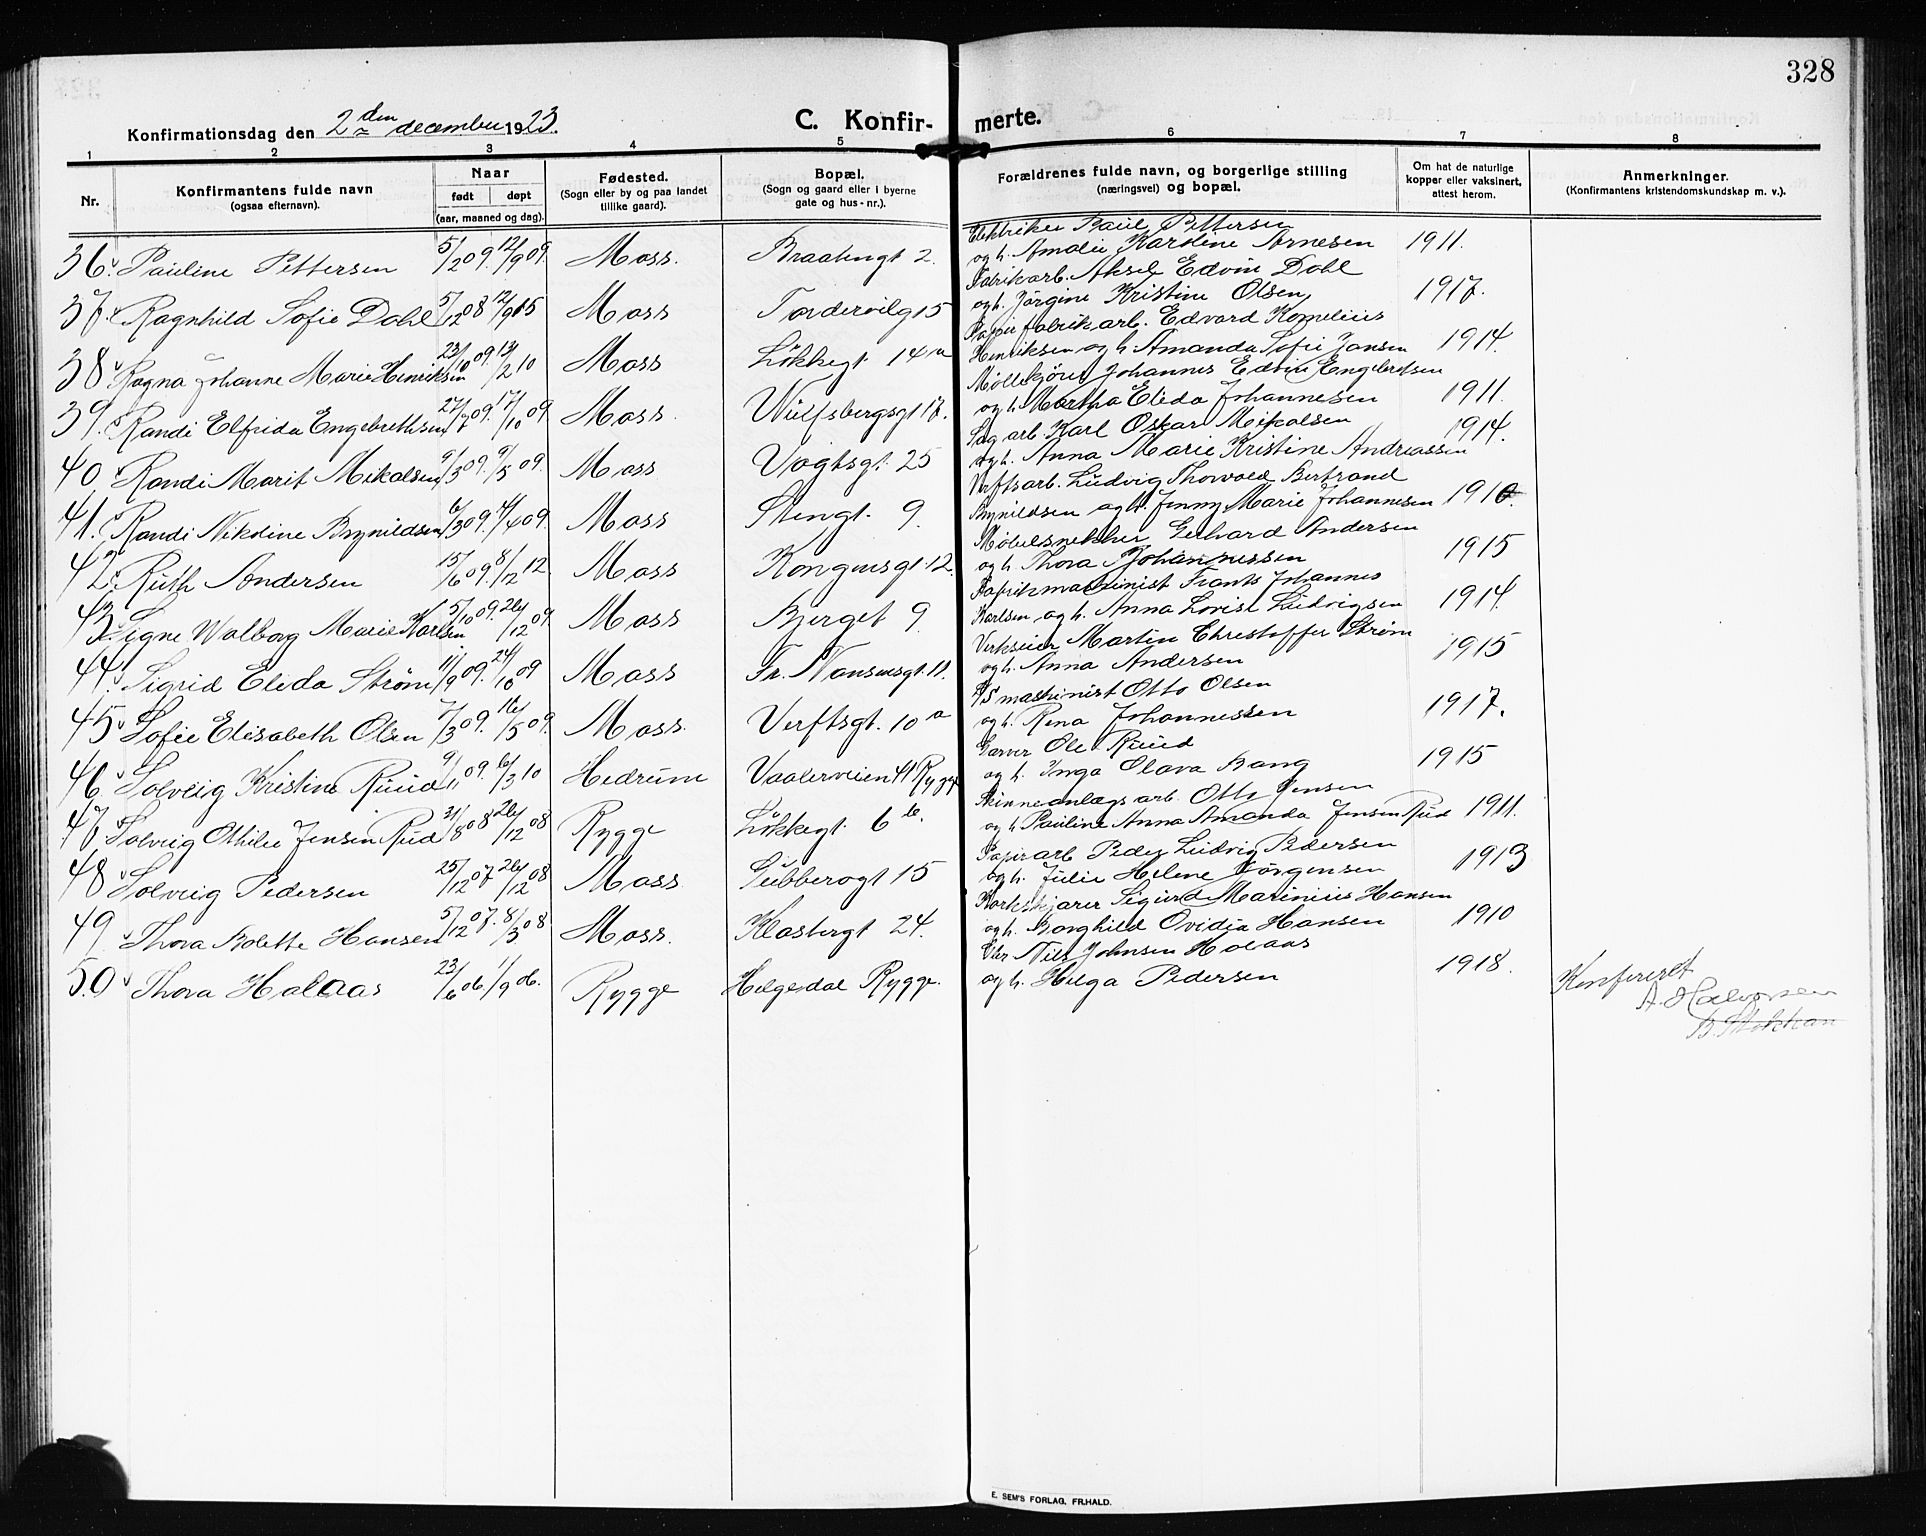 328
Konfirmationsdag den 2den december 1923.
C. Konfirmerte.
1 2 3 4 5 6 7 8
Nr. Konfirmantens fulde navn (ogsaa efternavn). Naar født døpt (aar, maaned og dag). Fødested. (Sogn eller by og paa landet tillike gaard). Bopæl. (Sogn og gaard eller i byerne gate og hus-nr.). Forældrenes fulde navn, og borgerlige stilling (næringsvei) og bopæl. Om hat de naturlige kopper eller vaksinert, attest herom. Anmerkninger. (Konfirmantens kristendomskundskap m. v.).
36. Pauline Pettersen 5/2 09. 12/9 09. Moss. Braatengt 2. Elektriker Paul Pettersen
og h. Amalie Karoline Arnesen 1911.
37. Ragnhild Sofie Dahl 5/12 08 12/9 15 Moss Tordervilg 15 Fabrikarb. Aksel Edvin Dahl
og h. Jørgine Kristine Olsen 1917.
38 Ragna Johanne Marie Henriksen 23/10 09. 13/2 10 Moss Løkkegt. 14 a Papirfabrikarb. Edvard Kornelius
Henriksen og h. Amanda Sofie Jansen 1914.
39. Randi Elfrida Engebrethsen 27/7 09. 17/10 09 Moss. Wulfsbergsgt 17. Møllekjører Johannes Edvin Engebretsen
og h. Martha Elida Johannesen 1911.
40 Randi Marit Mikalsen 9/3 09. 9/5 09. Moss Vogtsgt. 25 Sag arb. Karl Oskar Mikalsen
og h. Anna Marie Kristine Andreassen 1914.
41. Randi Nikoline Brynildsen 6/3 09. 4/4 09. Moss Stengt. 9. Verftsarb. Ludvig Thorvald Bertrand
Brynildsen og h. Jenny Marie Johannesen 1910.
42. Ruth Andersen 15/6 09. 8/12 12 Moss Kongensgt. 12. Møbelsnekker Gerhard Andersen
og h. Thora Johannessen 1915
43. Signe Walborg Marie Karlsen 5/10 09. 26/12 09. Moss Bjerget 9. Fabrikmaskinist Frants Johannes
Karlsen og h. Anna Lovise Ludvigsen 1914.
44. Sigrid Elida Strøm 11/9 09. 24/10 09 Moss Fr. Nansensgt. 11. Verkseier Martin Christoffer Strøm
og h. Anna Andersen 1915
45 Sofie Elisabeth Olsen 7/3 09. 16/5 09. Moss. Verftsgt. 10 a D/S maskinist Otto Olsen
og h. Rena Johannessen 1917.
46. Solveig Kristine Ruud 9/11 09. 6/3 10 Hedrum Vaalerveien 41 Rygge Garver Ole Ruud
og h. Inga Olava Bang 1915
47. Solveig Othilie Jensen Rud 31/8 08 26/12 08 Rygge Løkkegt. 6 b. Skinneanlægsarb. Otto Jensen
og h. Pauline Anna Amanda Jensen Rud 1911.
48 Solveig Pedersen 25/12 07 26/12 08 Moss Gubberogt 15 Papirarb Peder Ludvig Pedersen
og h. Julie Helene Jørgensen 1913
49. Thora Bolette Hansen 5/12 07. 8/3 08 Moss. Klostergt 24. Korkskjærer Sigurd Marinius Hansen
og h. Borghild Ovidia Hansen 1910
50 Thora Holaas 23/6 06 1/9 06. Rygge Helgesdal Rygge. Nils Johnsen Holaas
og h. Helga Pedersen 1918.
Konfereret
A. Halvorsen
E. SEM'S FORLAG, FR.HALD.